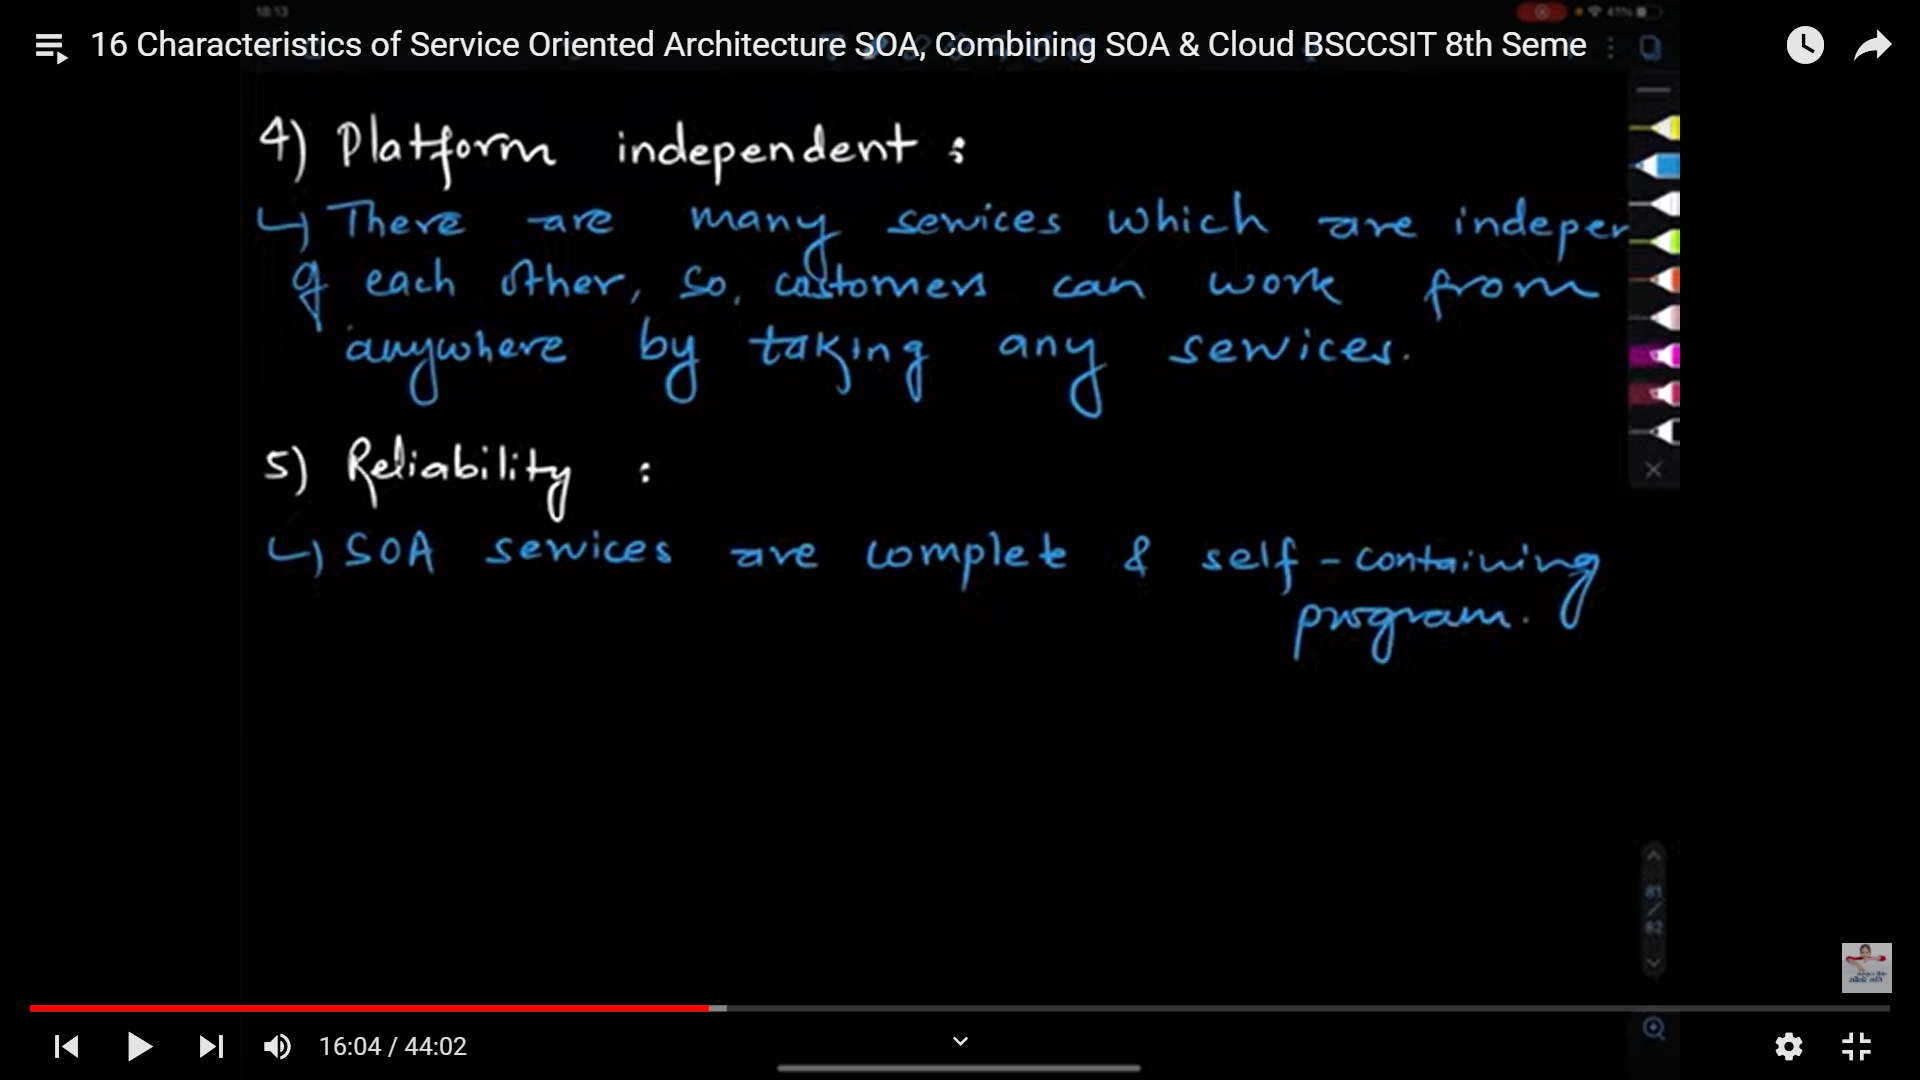 18:13
41%
16 Characteristics of Service Oriented Architecture SOA, Combining SOA & Cloud BSCCSIT 8th Seme
4) Platform independent :
↳ There are many services which are indepen
of each other, so, customers can work from
anywhere by taking any services.
5) Reliability :
↳ SOA services are complete & self-containing
program.
81
/
82
16:04 / 44:02